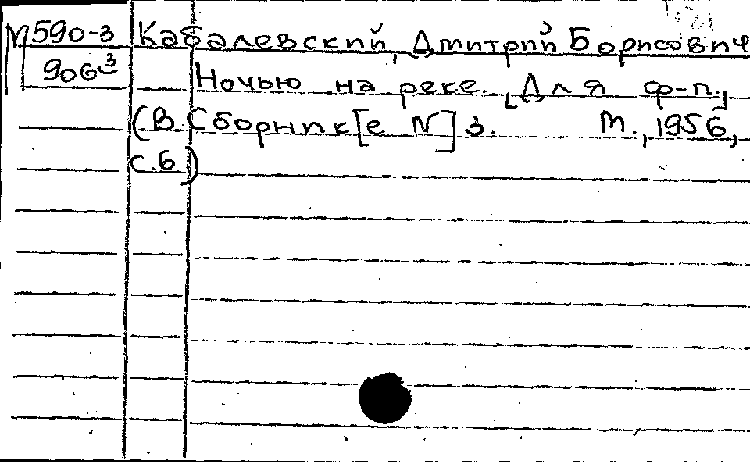 М590-3 Кабалевский, Дмитрий Борисович
906³ Ночью на реке. [Для ф-п.]
(В Сборник[е N] 3. М., 1956,
с.6)